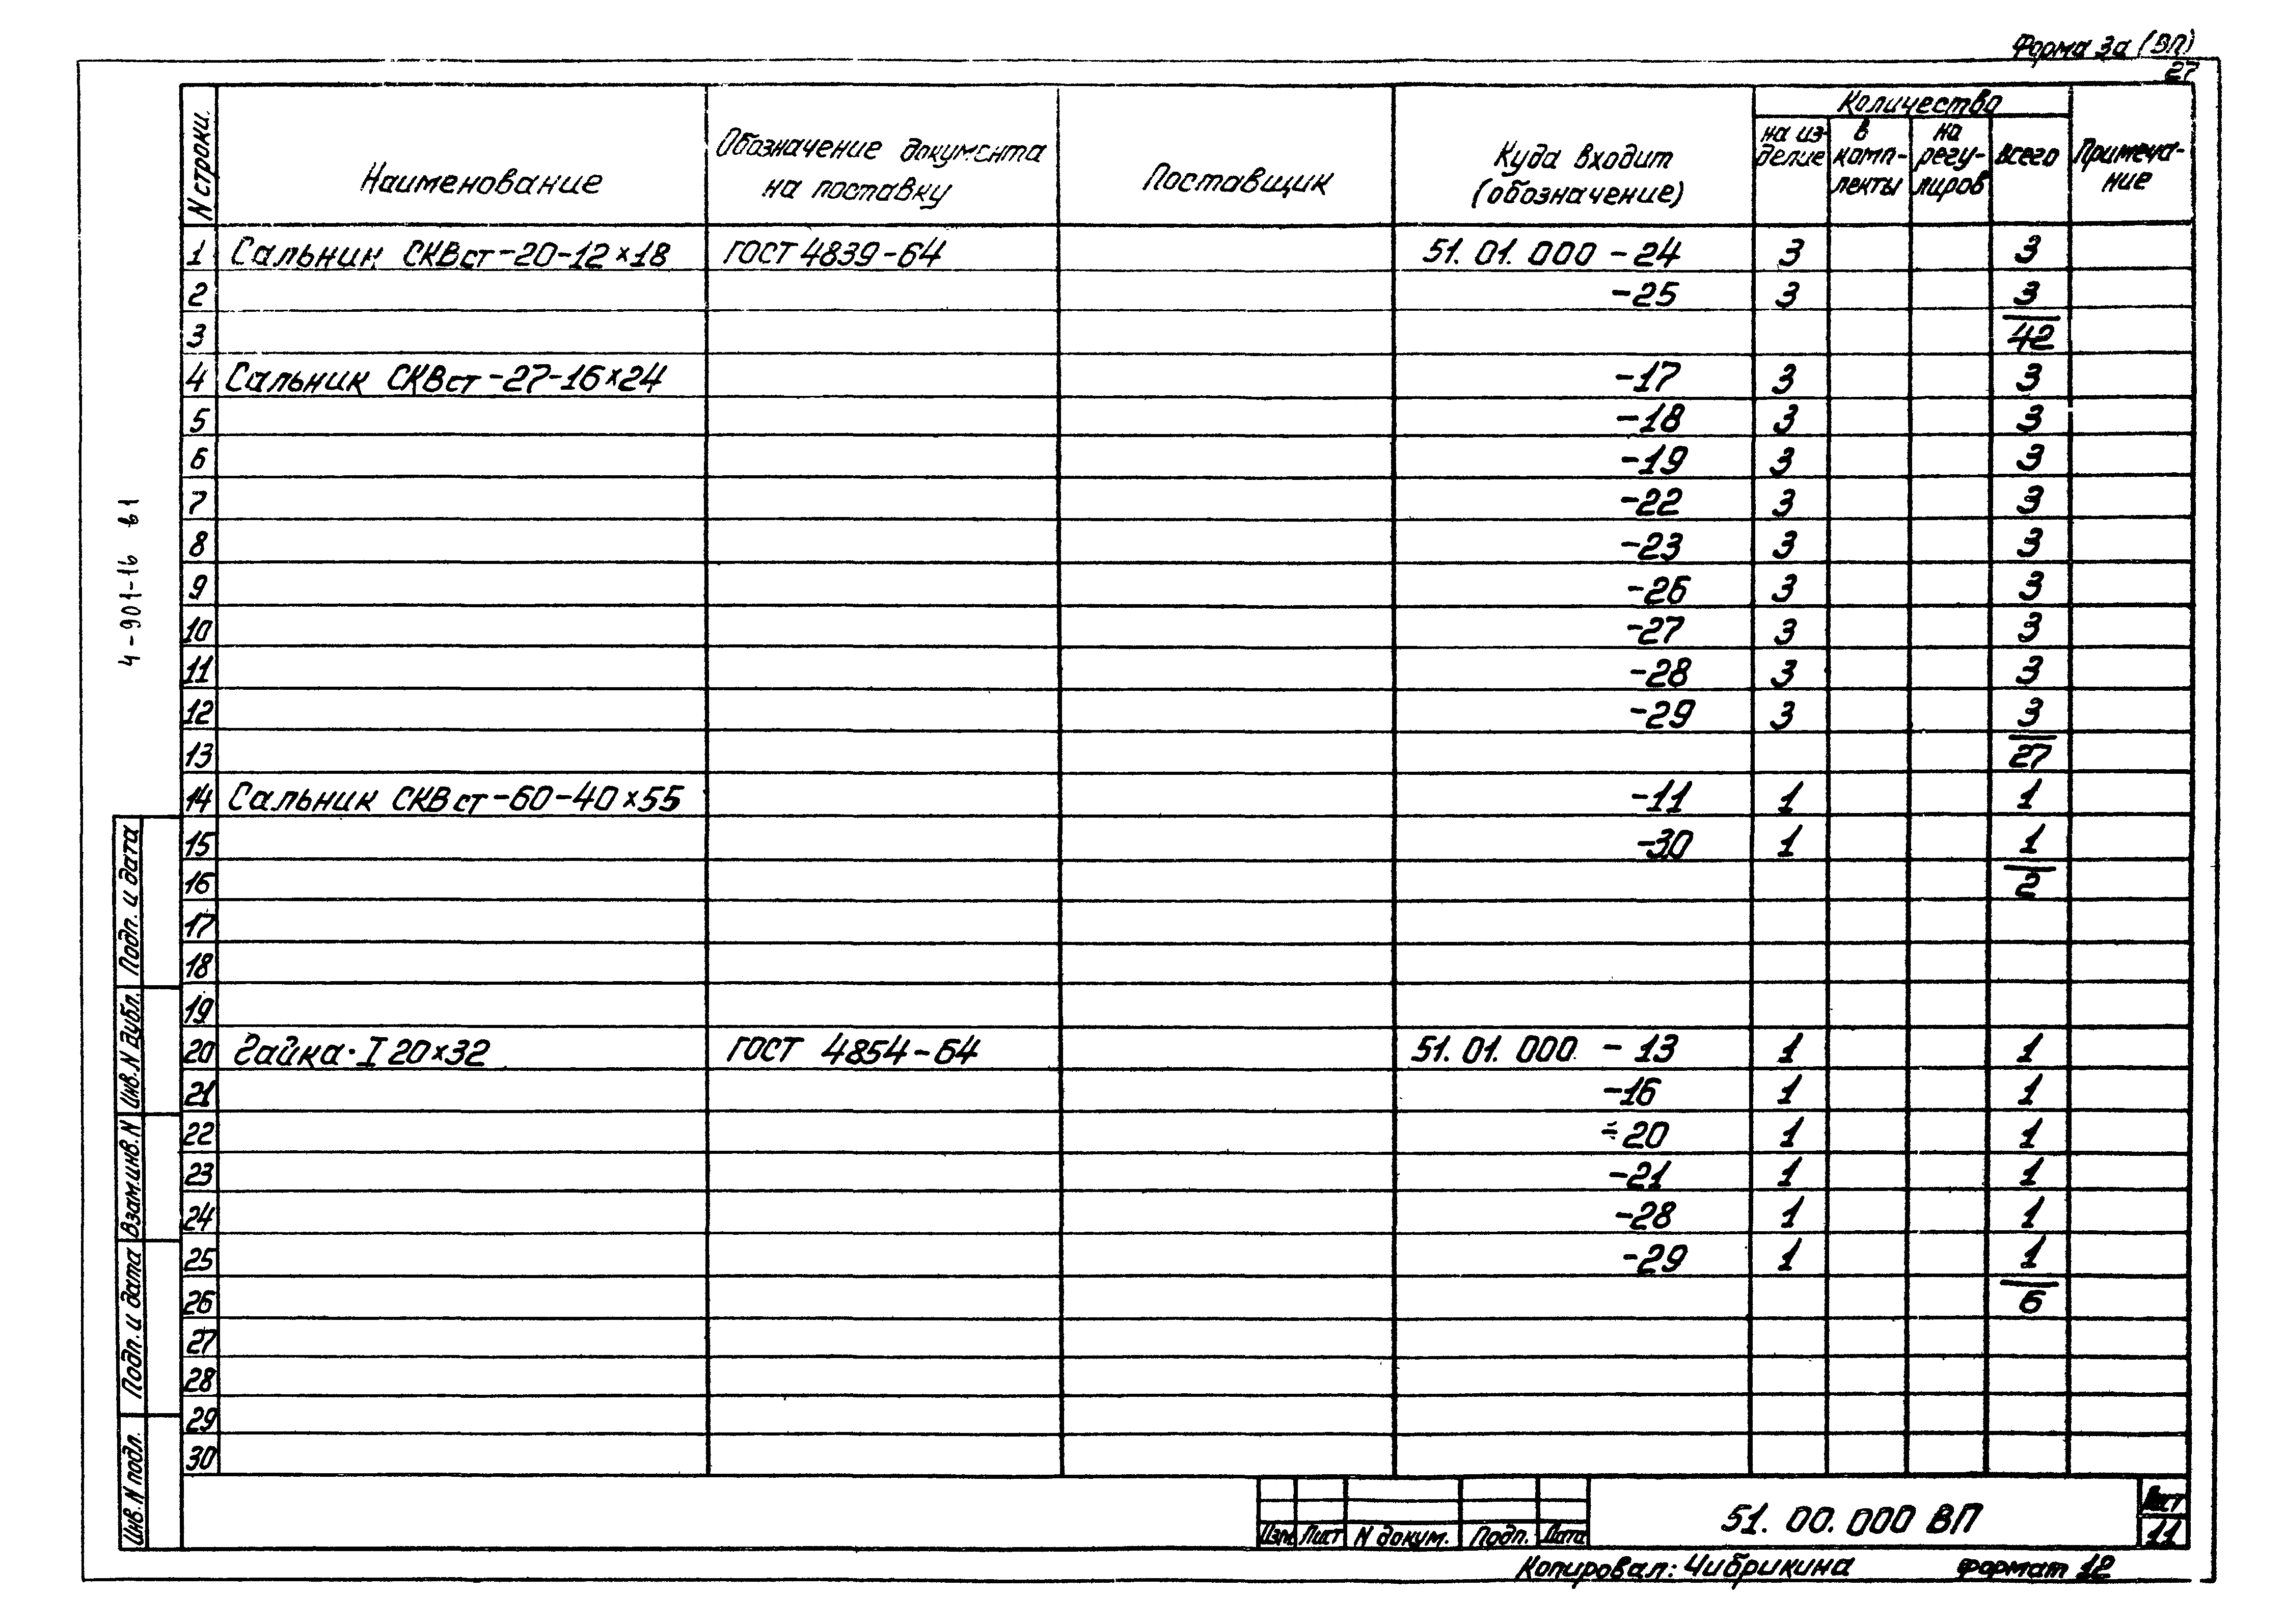 Форма 3а (ВП)
27
N строки.
Наименование
Обозначение документа
на поставку
Поставщик
Куда входит
(обозначение)
Количество
на из-
делие
в
комп-
лекты
на
регу-
лиров
всего
Примеча-
ние
1 Сальник СКВст-20-12×18 ГОСТ 4839-64 51. 01. 000 -24 3 3
2 -25 3 3
3 42
4 Сальник СКВст-27-16×24 -17 3 3
5 -18 3 3
6 -19 3 3
7 -22 3 3
8 -23 3 3
9 -26 3 3
10 -27 3 3
11 -28 3 3
12 -29 3 3
13 27
14 Сальник СКВст-60-40×55 -11 1 1
15 -30 1 1
16 2
17
18
19
20 Гайка·I 20×32 ГОСТ 4854-64 51. 01. 000 - 13 1 1
21 -16 1 1
22 -20 1 1
23 -21 1 1
24 -28 1 1
25 -29 1 1
26 6
27
28
29
30
4-901-16 в1
Подп. и дата
Инв. N дубл.
Взам.инв. N
Подп. и дата
Инв. N подл.
Изм Лист N докум. Подп. Дата
51. 00. 000 ВП
Лист
11
Копировал: Чибрикина формат 12